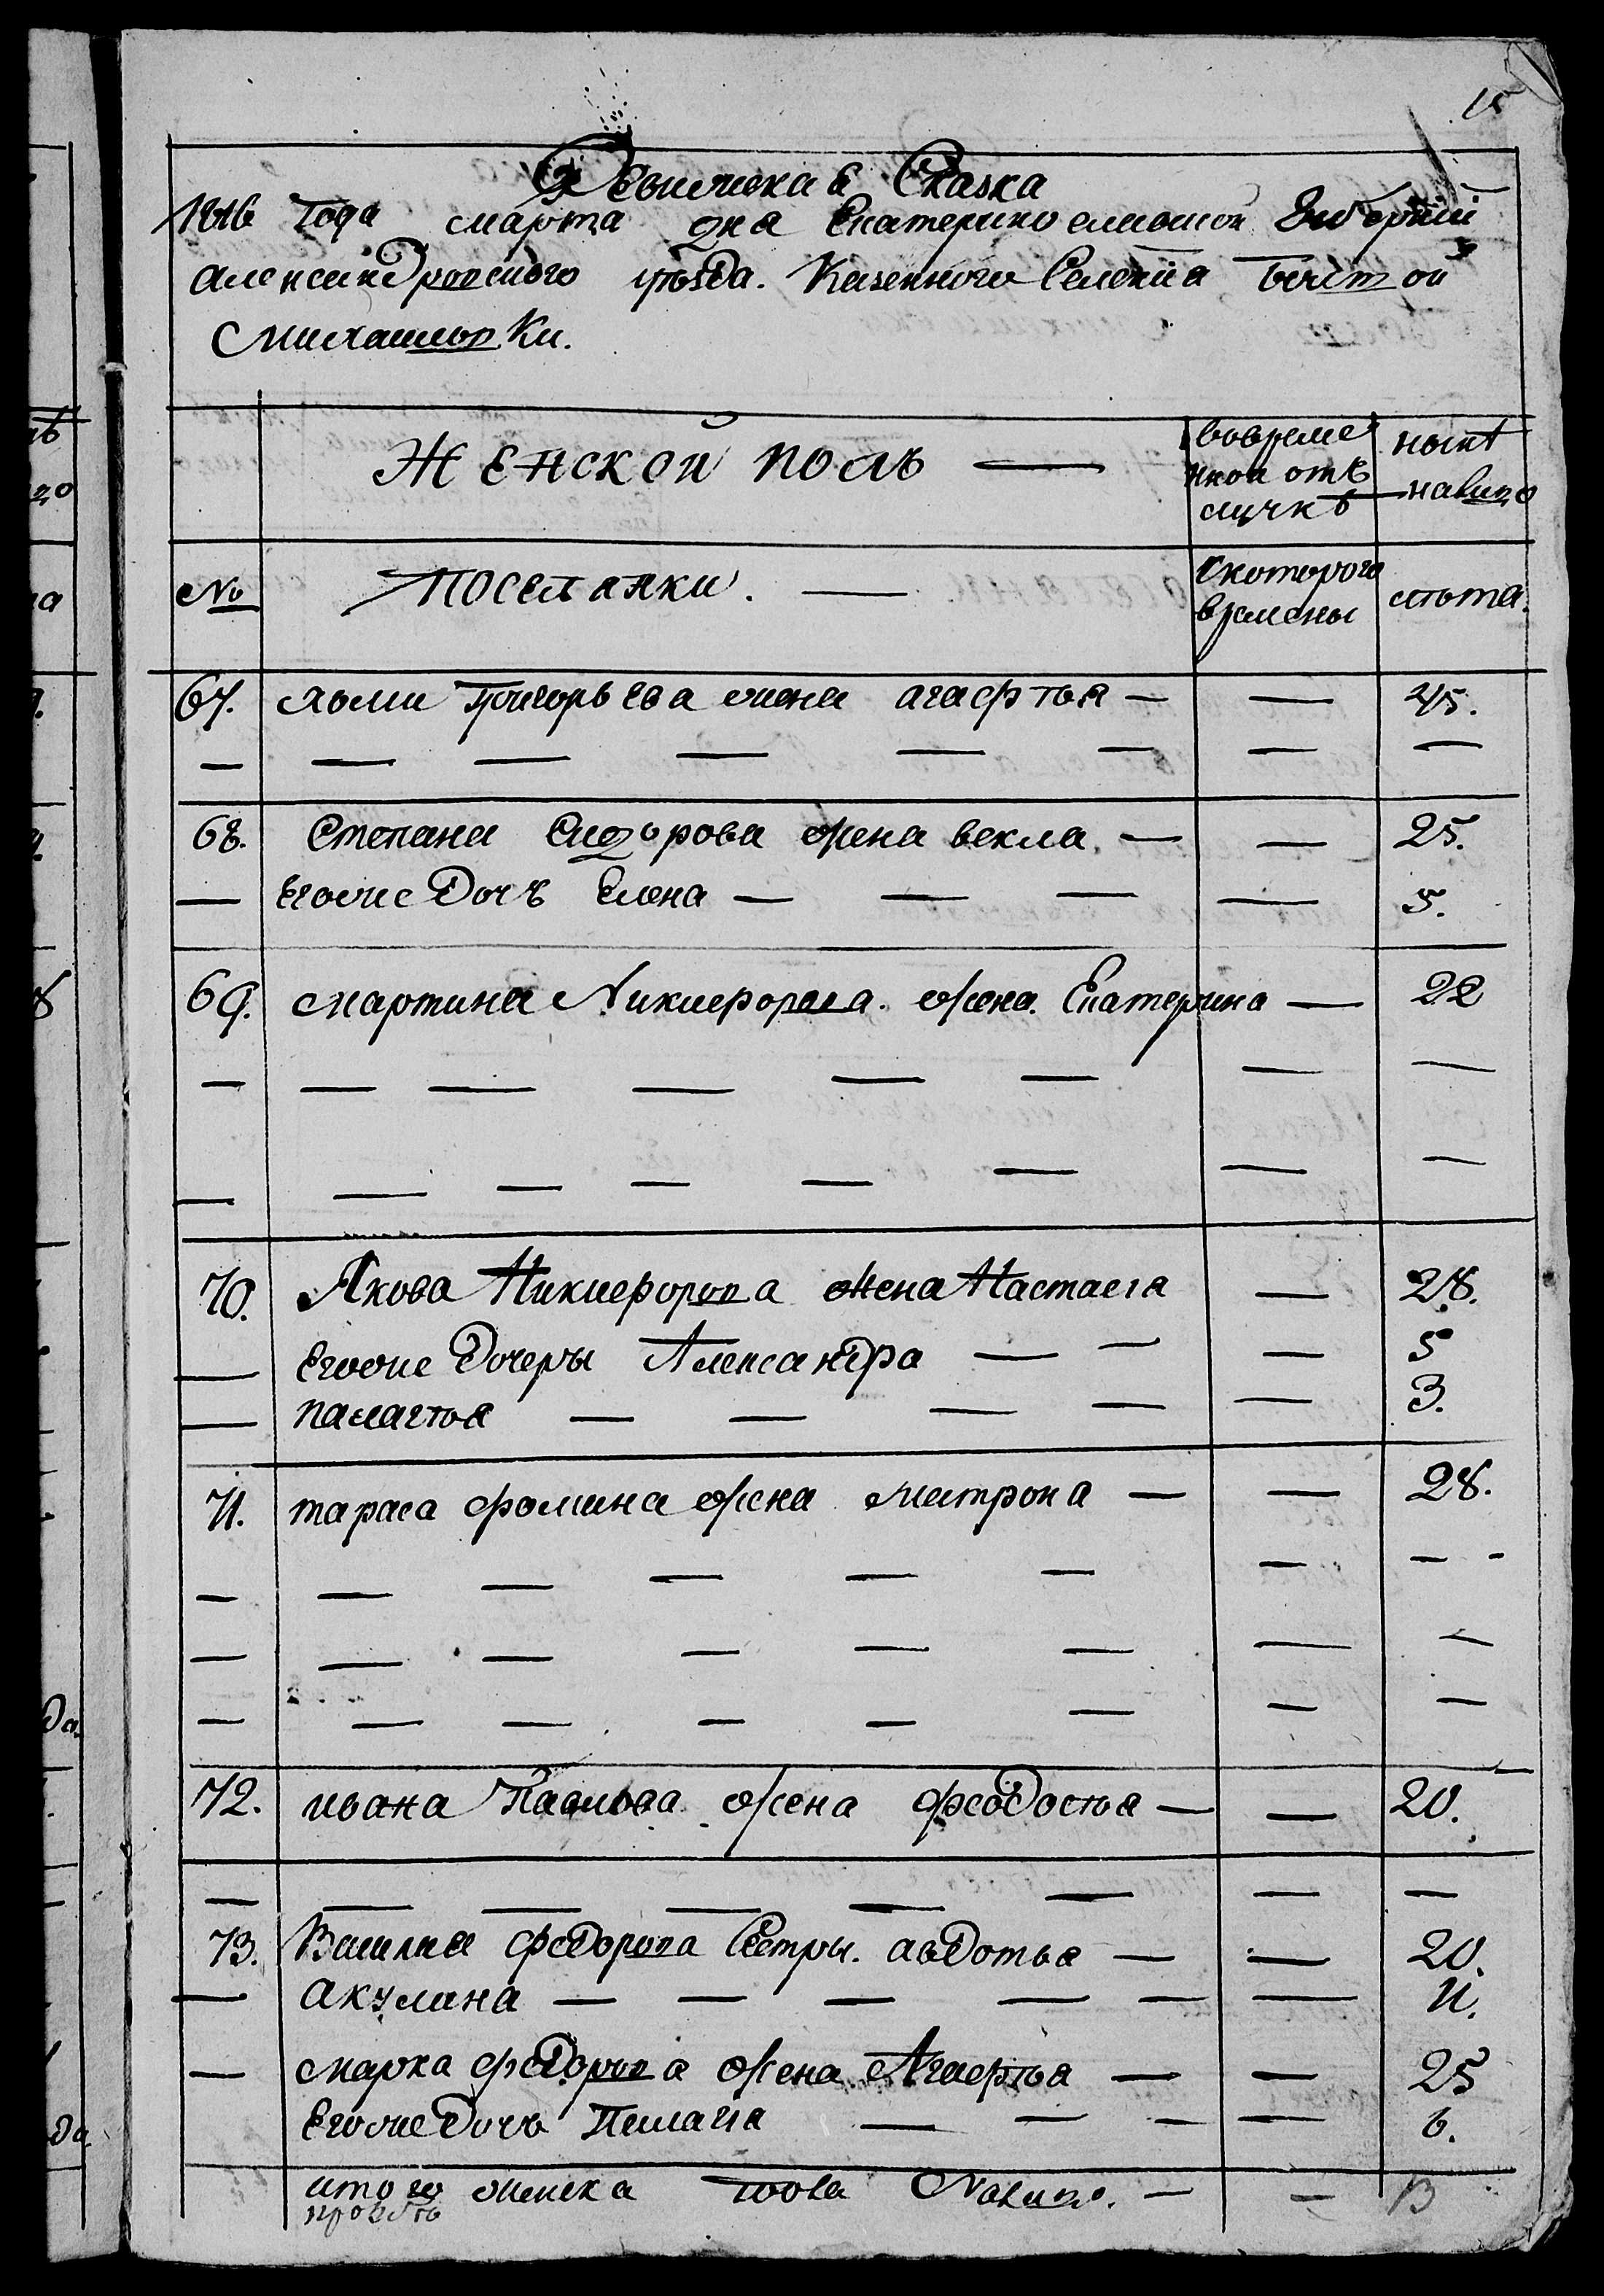 15
Ревижская Сказка
1816 года марта дня Екатеринославской Губернии
Александровского уѣзда. Казенного Селения Толстой
Михайловки.
Женской полъ — вовреме нной отъ лучкѣ нынѣ налицо
№ поселянки. — скоторого времены лѣта.
67. хоми Григорьева жена агафія — — 45.
— — — — — — — —
68. Степана Сидорова жена векла — — 25.
— Егоже Дочъ Елена — — — — 5.
69. мартина Никифорова. жена. Екатерина — 22
— — — — — — — —
— — — — — — — —
70. Якова Никифорова жена Настасія — 28.
— Егоже Дочеры Александра — — — 5
— палагія — — — — — 3.
71. тараса фомина жена матрона — — 28.
— — — — — — — — -
— — — — — — — —
— — — — — — — —
72. ивана Павлова жена феодосія — — 20.
— — — — — — — —
73. Василия федорова Сестры. авдотья — — 20.
— Акулина — — — — — — 11.
— марка федорова жена Агафія — — 25
Егоже Дочь Пелагія — — — — 6.
итого женска пола Налицо. — — 13